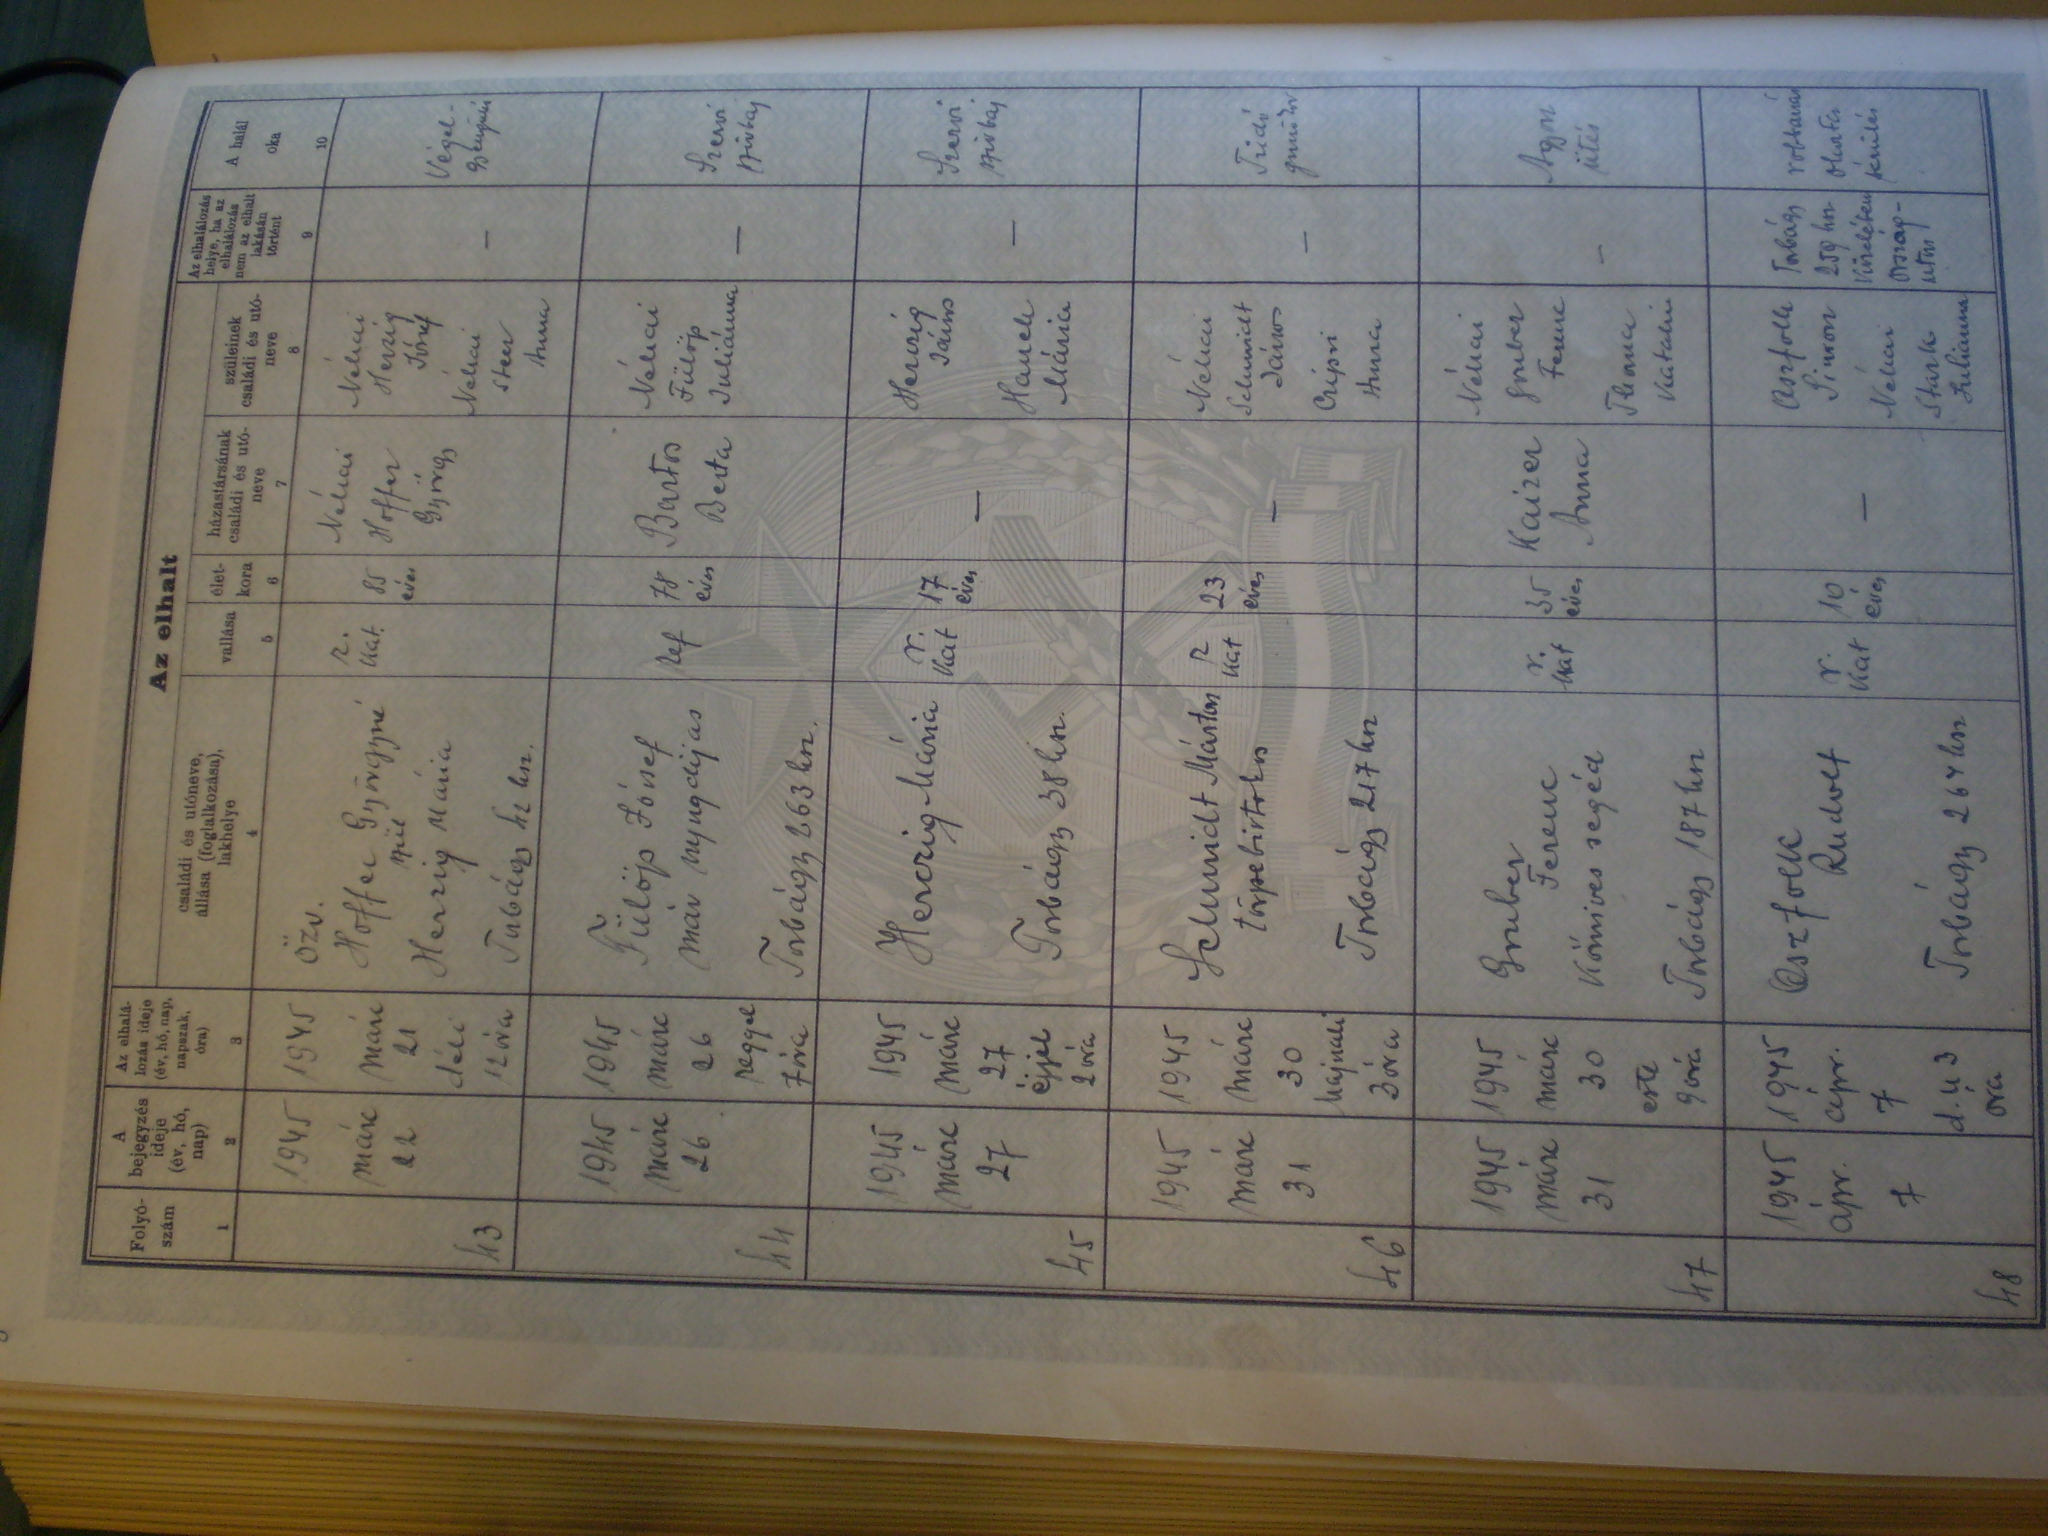 Az elhalt
Folyó-
szám
A
bejegyzés
ideje
(év, hó,
nap)
Az elhalá-
lozás ideje
(év, hó, nap,
napszak,
óra)
családi és utóneve,
állása (foglalkozása),
lakhelye
vallása
élet-
kora
házastársának
családi és utó-
neve
szüleinek
családi és utó-
neve
Az elhalálozás
helye, ha az
elhalálozás
nem az elhalt
lakásán
történt
A halál
oka
1
2
3
4
5
6
7
8
9
10
43
1945
márc
22
1945
márc
21
déli
12 óra
Özv.
Hoffer Györgyné
szül
Herzig Mária
Torbágy 42 hsz.
r.
kat.
85
éves
Néhai
Hoffer
György
Néhai
Herzig
József
Néhai
Steer
Anna
—
Végel-
gyengülés
44
1945
márc
26
1945
márc
26
reggel
7 óra
Fülöp József
máv nyugdíjas
Torbágy 263 hsz.
ref
78
éves
Bartos
Berta
Néhai
Fülöp
Juliánna
—
Szervi
szívbaj
45
1945
márc
27
1945
márc
27
éjjel
2 óra
Herczig Mária
Torbágy 38 hsz.
r.
kat
17
éves
—
Herczig
János
Hanek
Mária
—
Szervi
szívbaj
46
1945
márc
31
1945
márc
30
hajnali
3 óra
Schmidt Márton
törpebirtokos
Torbágy 217 hsz
r
kat
23
éves
—
Néhai
Schmidt
János
Czipri
Anna
—
Tüdő
gümőkór
47
1945
márc
31
1945
márc
30
este
9 óra
Gruber
Ferenc
Kőmíves segéd
Torbágy 187 hsz
r.
kat
35
éves
Kaizer
Anna
Néhai
Gruber
Ferenc
Katalin
—
Agyon
ütés
48
1945
ápr.
7
1945
ápr.
7
d. u 3
óra
Oszfolk
Rudolf
Torbágy 264 hsz
r.
kat
10
éves
—
Oszfolk
Simon
Néhai
Stark
Julianna
Torbágy
259 hsz
közelében
Ország-
úton
robbanás
okozta
sérülés